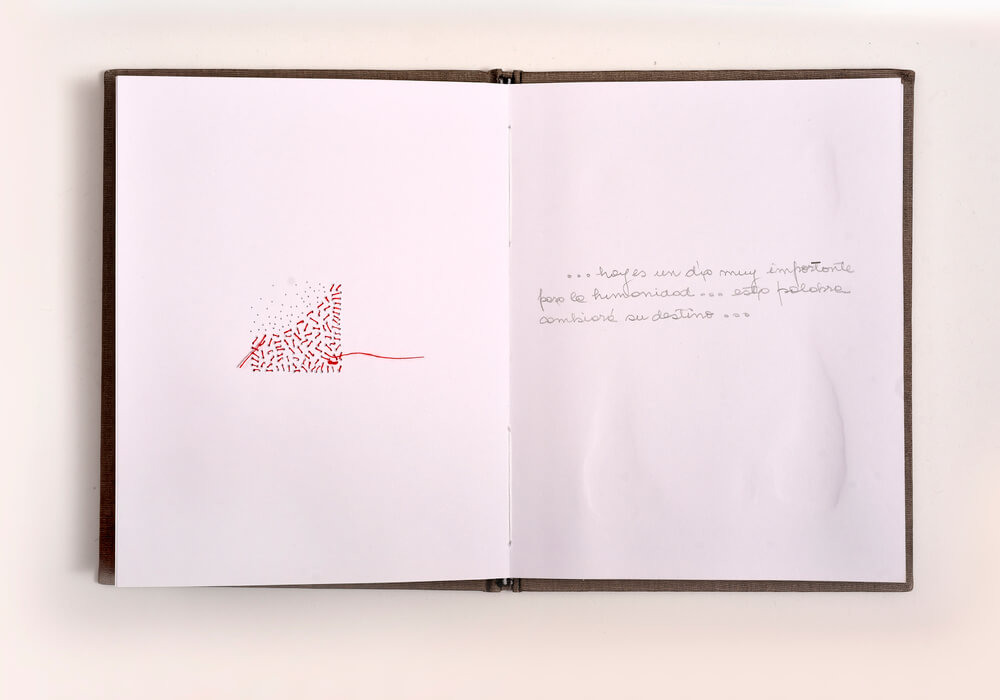 ... hoy es un día muy importante
para la humanidad ... esta palabra
cambiará su destino ...